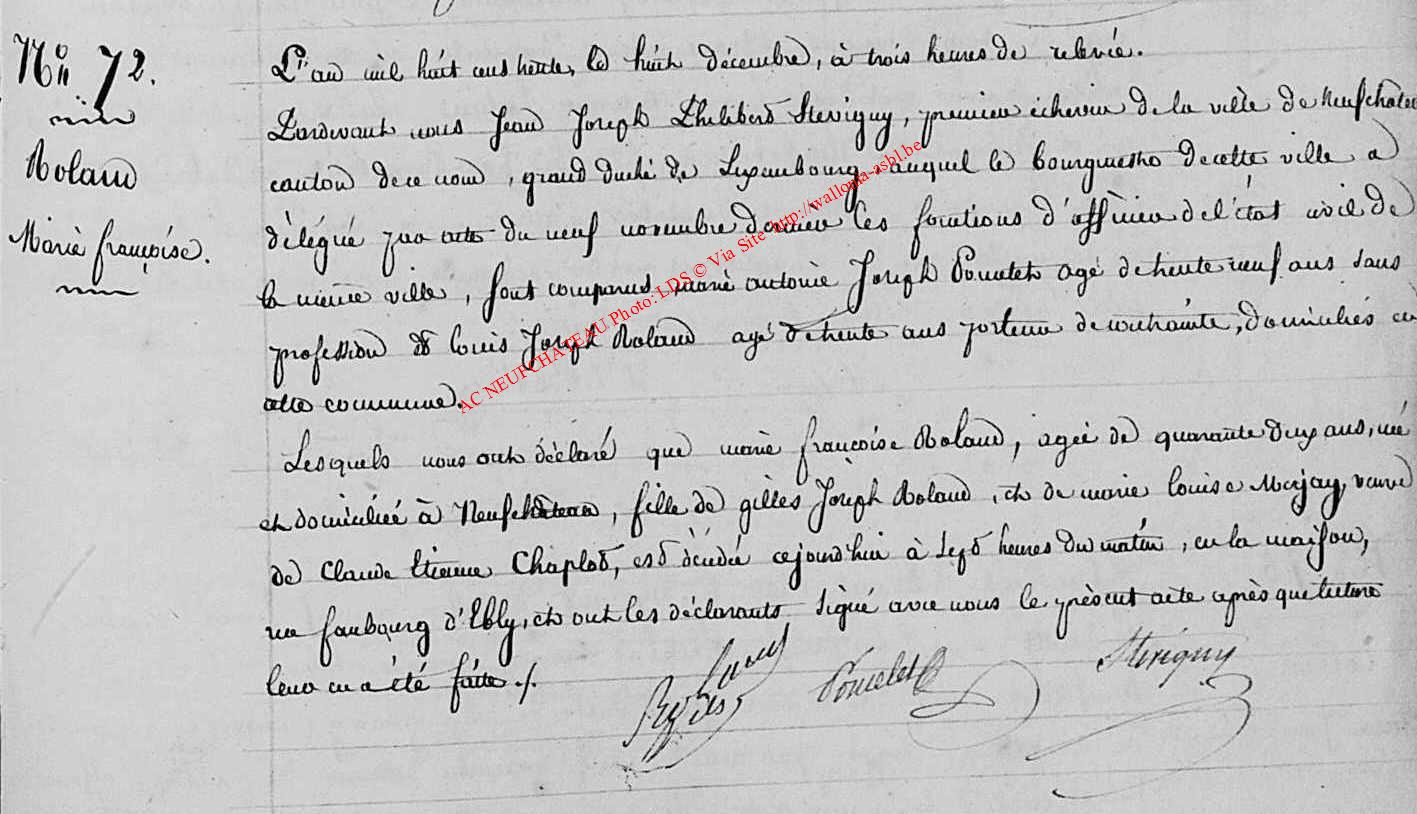 N° 72.
Roland
Marie françoise.
L'an mil huit cens trente, le huit décembre, à trois heures de relevée.
Pardevant nous Jean Joseph Philibert Stevigny, premier échevin de la ville de Neufchateau
canton de ce nom, grand duché de Luxembourg, auquel le bourgmestre de cette ville a
délégué par acte du neuf novembre dernier les fonctions d'officier de l'état civil de
la même ville, sont comparus marie antoine Joseph Poncelet agé de trente neuf ans sans
profession & Louis Joseph Roland agé de trente ans porteur de contrainte, domiciliés en
cette commune.
Lesquels nous ont déclaré que marie françoise Roland, agée de quarante deux ans, née
et domiciliée à Neufchateau, fille de gilles Joseph Roland, et de marie louise, veuve
de Claude Etienne Chaplot, est décédée cejourd'hui à sept heures du matin, en la maison,
rue faubourg d'Ebly, et ont les déclarants signé avec nous le présent acte après que lecture
leur en a été faite ./.
Poncelet
Stevigny
AC NEUFCHATEAU Photo: LDS © Via Site http://wallonia-asbl.be